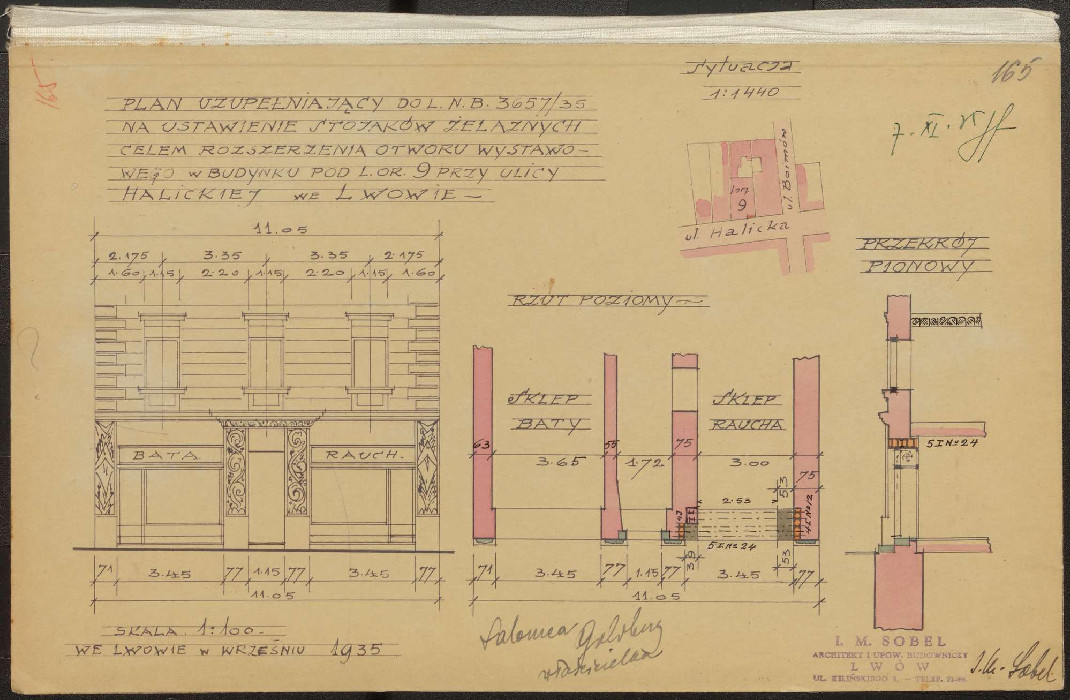 165
165
PLAN UZUPEŁNIAJĄCY DO L. N. B. 3657/35
NA USTAWIENIE STOJAKÓW ŻELAZNYCH
CELEM ROZSZERZENIA OTWORU WYSTAWO-
WEGO W BUDYNKU POD L. OR. 9 PRZY ULICY
HALICKIEJ WE LWOWIE —
Sytuacja
1:1440
7. XI. 35
ul. Boimów
9
ul. Halicka
PRZEKRÓJ
PIONOWY
11.05
2.175 3.35 3.35 2.175
1.60 1.15 2.20 1.15 2.20 1.15 1.60
BATA RAUCH.
71 3.45 77 1.15 77 3.45 77
11.05
RZUT POZIOMY —
SKLEP
BATY
SKLEP
RAUCHA
63 55 75
3.65 1.72 3.00
75
53
2.53
5 I № 24
39 53
71 3.45 77 1.15 77 3.45 77
11.05
5 I № 24
SKALA 1:100.-
WE LWOWIE W WRZEŚNIU 1935
Salomea Goldberg
właścicielka
I. M. SOBEL
ARCHITEKT I UPOW. BUDOWNICZY
LWÓW
UL. KILIŃSKIEGO
I. M. Sobel